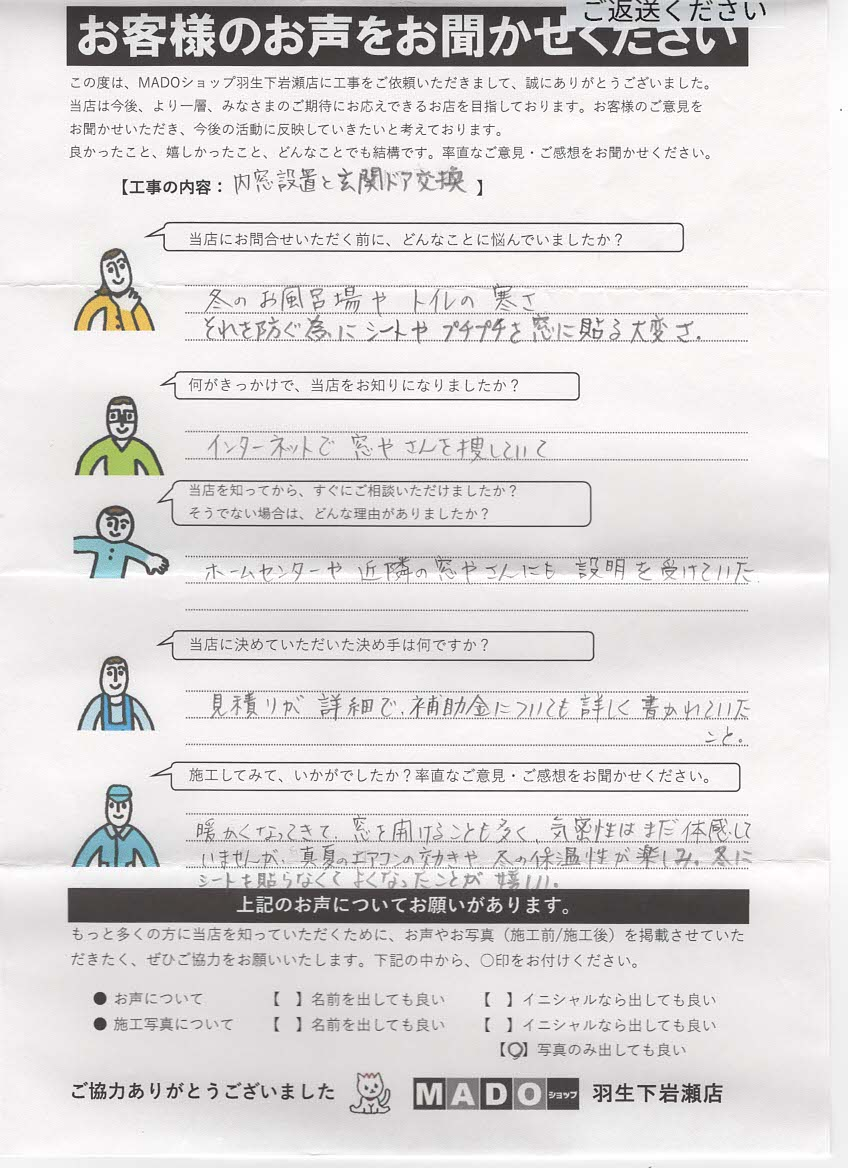 ご返送ください
お客様のお声をお聞かせください
この度は、MADOショップ羽生下岩瀬店に工事をご依頼いただきまして、誠にありがとうございました。
当店は今後、より一層、みなさまのご期待にお応えできるお店を目指しております。お客様のご意見を
お聞かせいただき、今後の活動に反映していきたいと考えております。
良かったこと、嬉しかったこと、どんなことでも結構です。率直なご意見・ご感想をお聞かせください。
【工事の内容：内窓設置と玄関ドア交換】
当店にお問合せいただく前に、どんなことに悩んでいましたか？
冬のお風呂場やトイレの寒さ
それを防ぐ為にシートやプチプチを窓に貼る大変さ.
何がきっかけで、当店をお知りになりましたか？
インターネットで窓やさんを捜していて
当店を知ってから、すぐにご相談いただけましたか？
そうでない場合は、どんな理由がありましたか？
ホームセンターや近隣の窓やさんにも説明を受けていた.
当店に決めていただいた決め手は何ですか？
見積りが詳細で、補助金についても詳しく書かれていた
こと。
施工してみて、いかがでしたか？率直なご意見・ご感想をお聞かせください。
暖かくなってきて、窓を開けることも多く、気密性はまだ体感して
いませんが、真夏のエアコンの効きや冬の保温性が楽しみ。冬に
シートを貼らなくてよくなったことが嬉しい。
上記のお声についてお願いがあります。
もっと多くの方に当店を知っていただくために、お声やお写真（施工前/施工後）を掲載させていた
だきたく、ぜひご協力をお願いいたします。下記の中から、〇印をお付けください。
● お声について 【 】名前を出しても良い 【 】イニシャルなら出しても良い
● 施工写真について 【 】名前を出しても良い 【 】イニシャルなら出しても良い
【〇】写真のみ出しても良い
ご協力ありがとうございました MADOショップ 羽生下岩瀬店